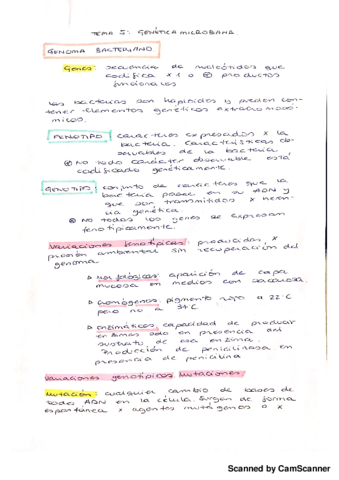 TEMA 5: GENÉTICA MICROBIANA
GENOMA BACTERIANO
Genes: secuencias de nucleótidos que
codifica x 1 o ⊕ productos
funcionales
Las bacterias son haploides y pueden con-
tener elementos genéticos extracromosó-
micos.
FENOTIPO: caracteres expresados x la
bacteria. Características ob-
servables de la bacteria.
No todo carácter observable está
codificado genéticamente.
GENOTIPO: conjunto de caracteres que la
bacteria posee en su ADN y
que son transmitidos x heren-
cia genética.
No todos los genes se expresan
fenotípicamente.
Variaciones fenotípicas: producidas x
presión ambiental sin recuperación del
genoma
morfológicas: aparición de capa
mucosa en medios con sacarosa.
cromógenos: pigmento rojo a 22ºC
pero no a 37ºC
enzimáticos: capacidad de producir
enzimas solo en presencia del
sustrato de esa enzima.
Producción de penicilinasa en
presencia de penicilina
Variaciones genotípicas. Mutaciones
Mutación: cualquier cambio de bases de
ADN en la célula. Surgen de forma
espontánea x agentes mutágenos o x
Scanned by CamScanner